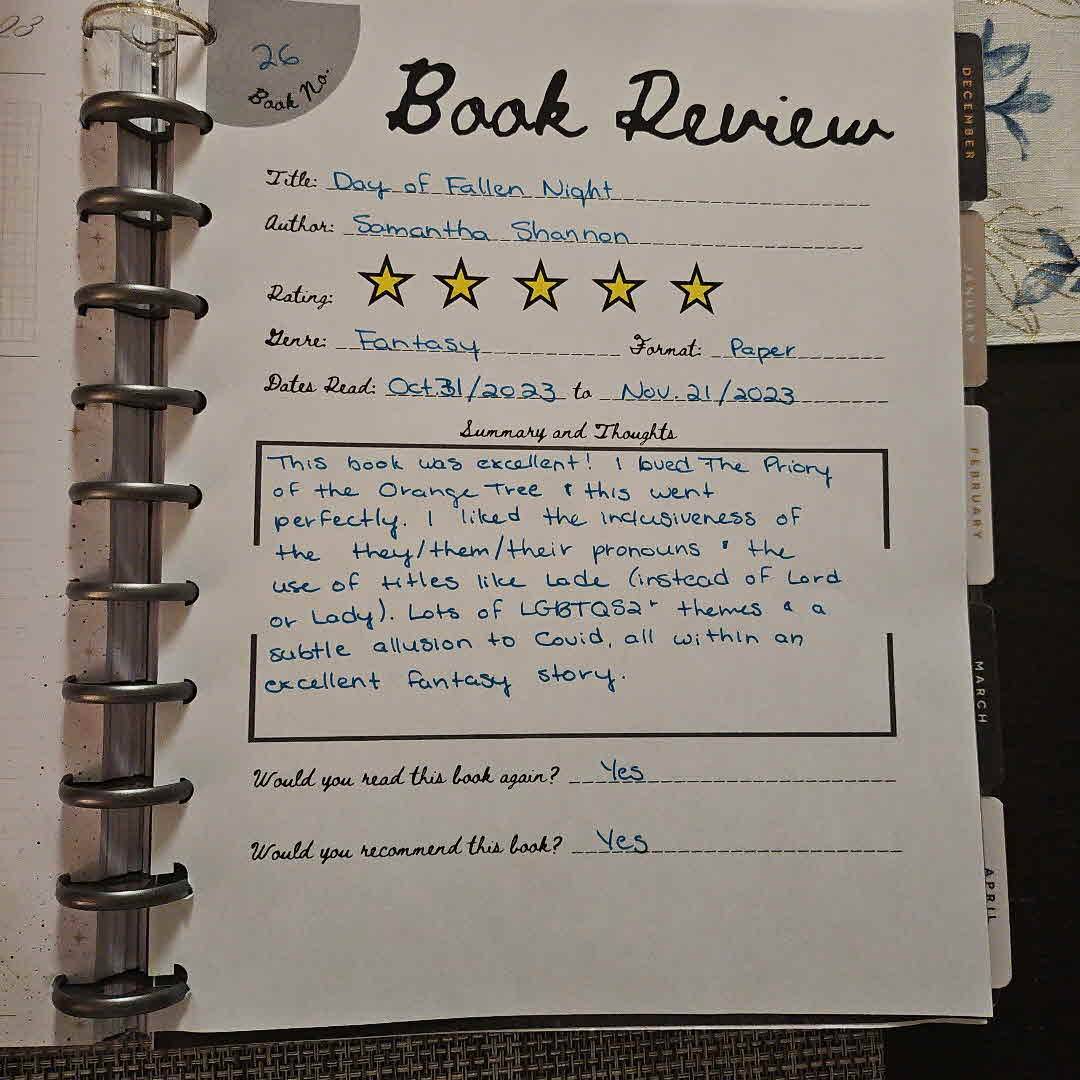 23
26
Book No.
Book Review
Title: Day of Fallen Night
Author: Samantha Shannon
Rating:
Genre: Fantasy Format: Paper
Dates Read: Oct.31/2023 to Nov. 21/2023
Summary and Thoughts
This book was excellent! I loved The Priory
of the Orange Tree & this went
perfectly. I liked the inclusiveness of
the they/them/their pronouns & the
use of titles like Lade (instead of Lord
or Lady). Lots of LGBTQS2+ themes & a
subtle allusion to Covid, all within an
excellent fantasy story.
Would you read this book again? Yes
Would you recommend this book? Yes
DECEMBER
JANUARY
FEBRUARY
MARCH
APRIL